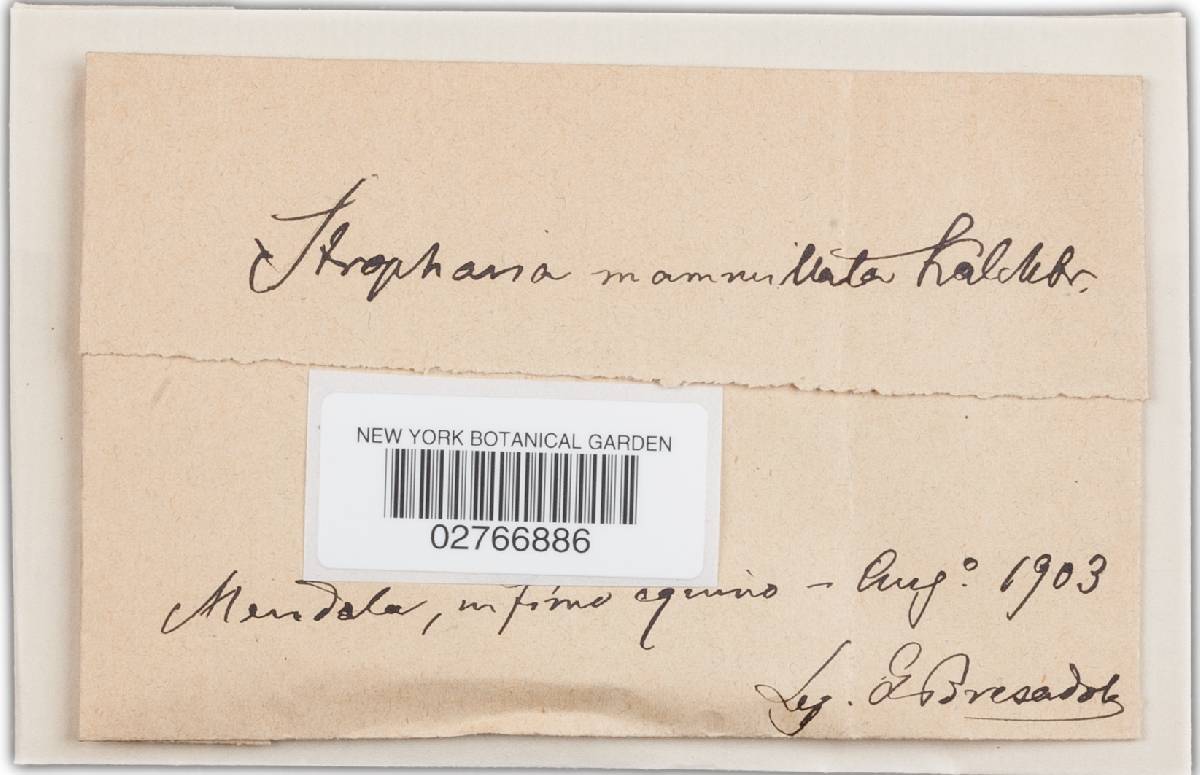 Stropharia mammillata Kalchbr.
NEW YORK BOTANICAL GARDEN
02766886
Mendola, in fimo equino – Aug.º 1903
Leg. G Bresadola